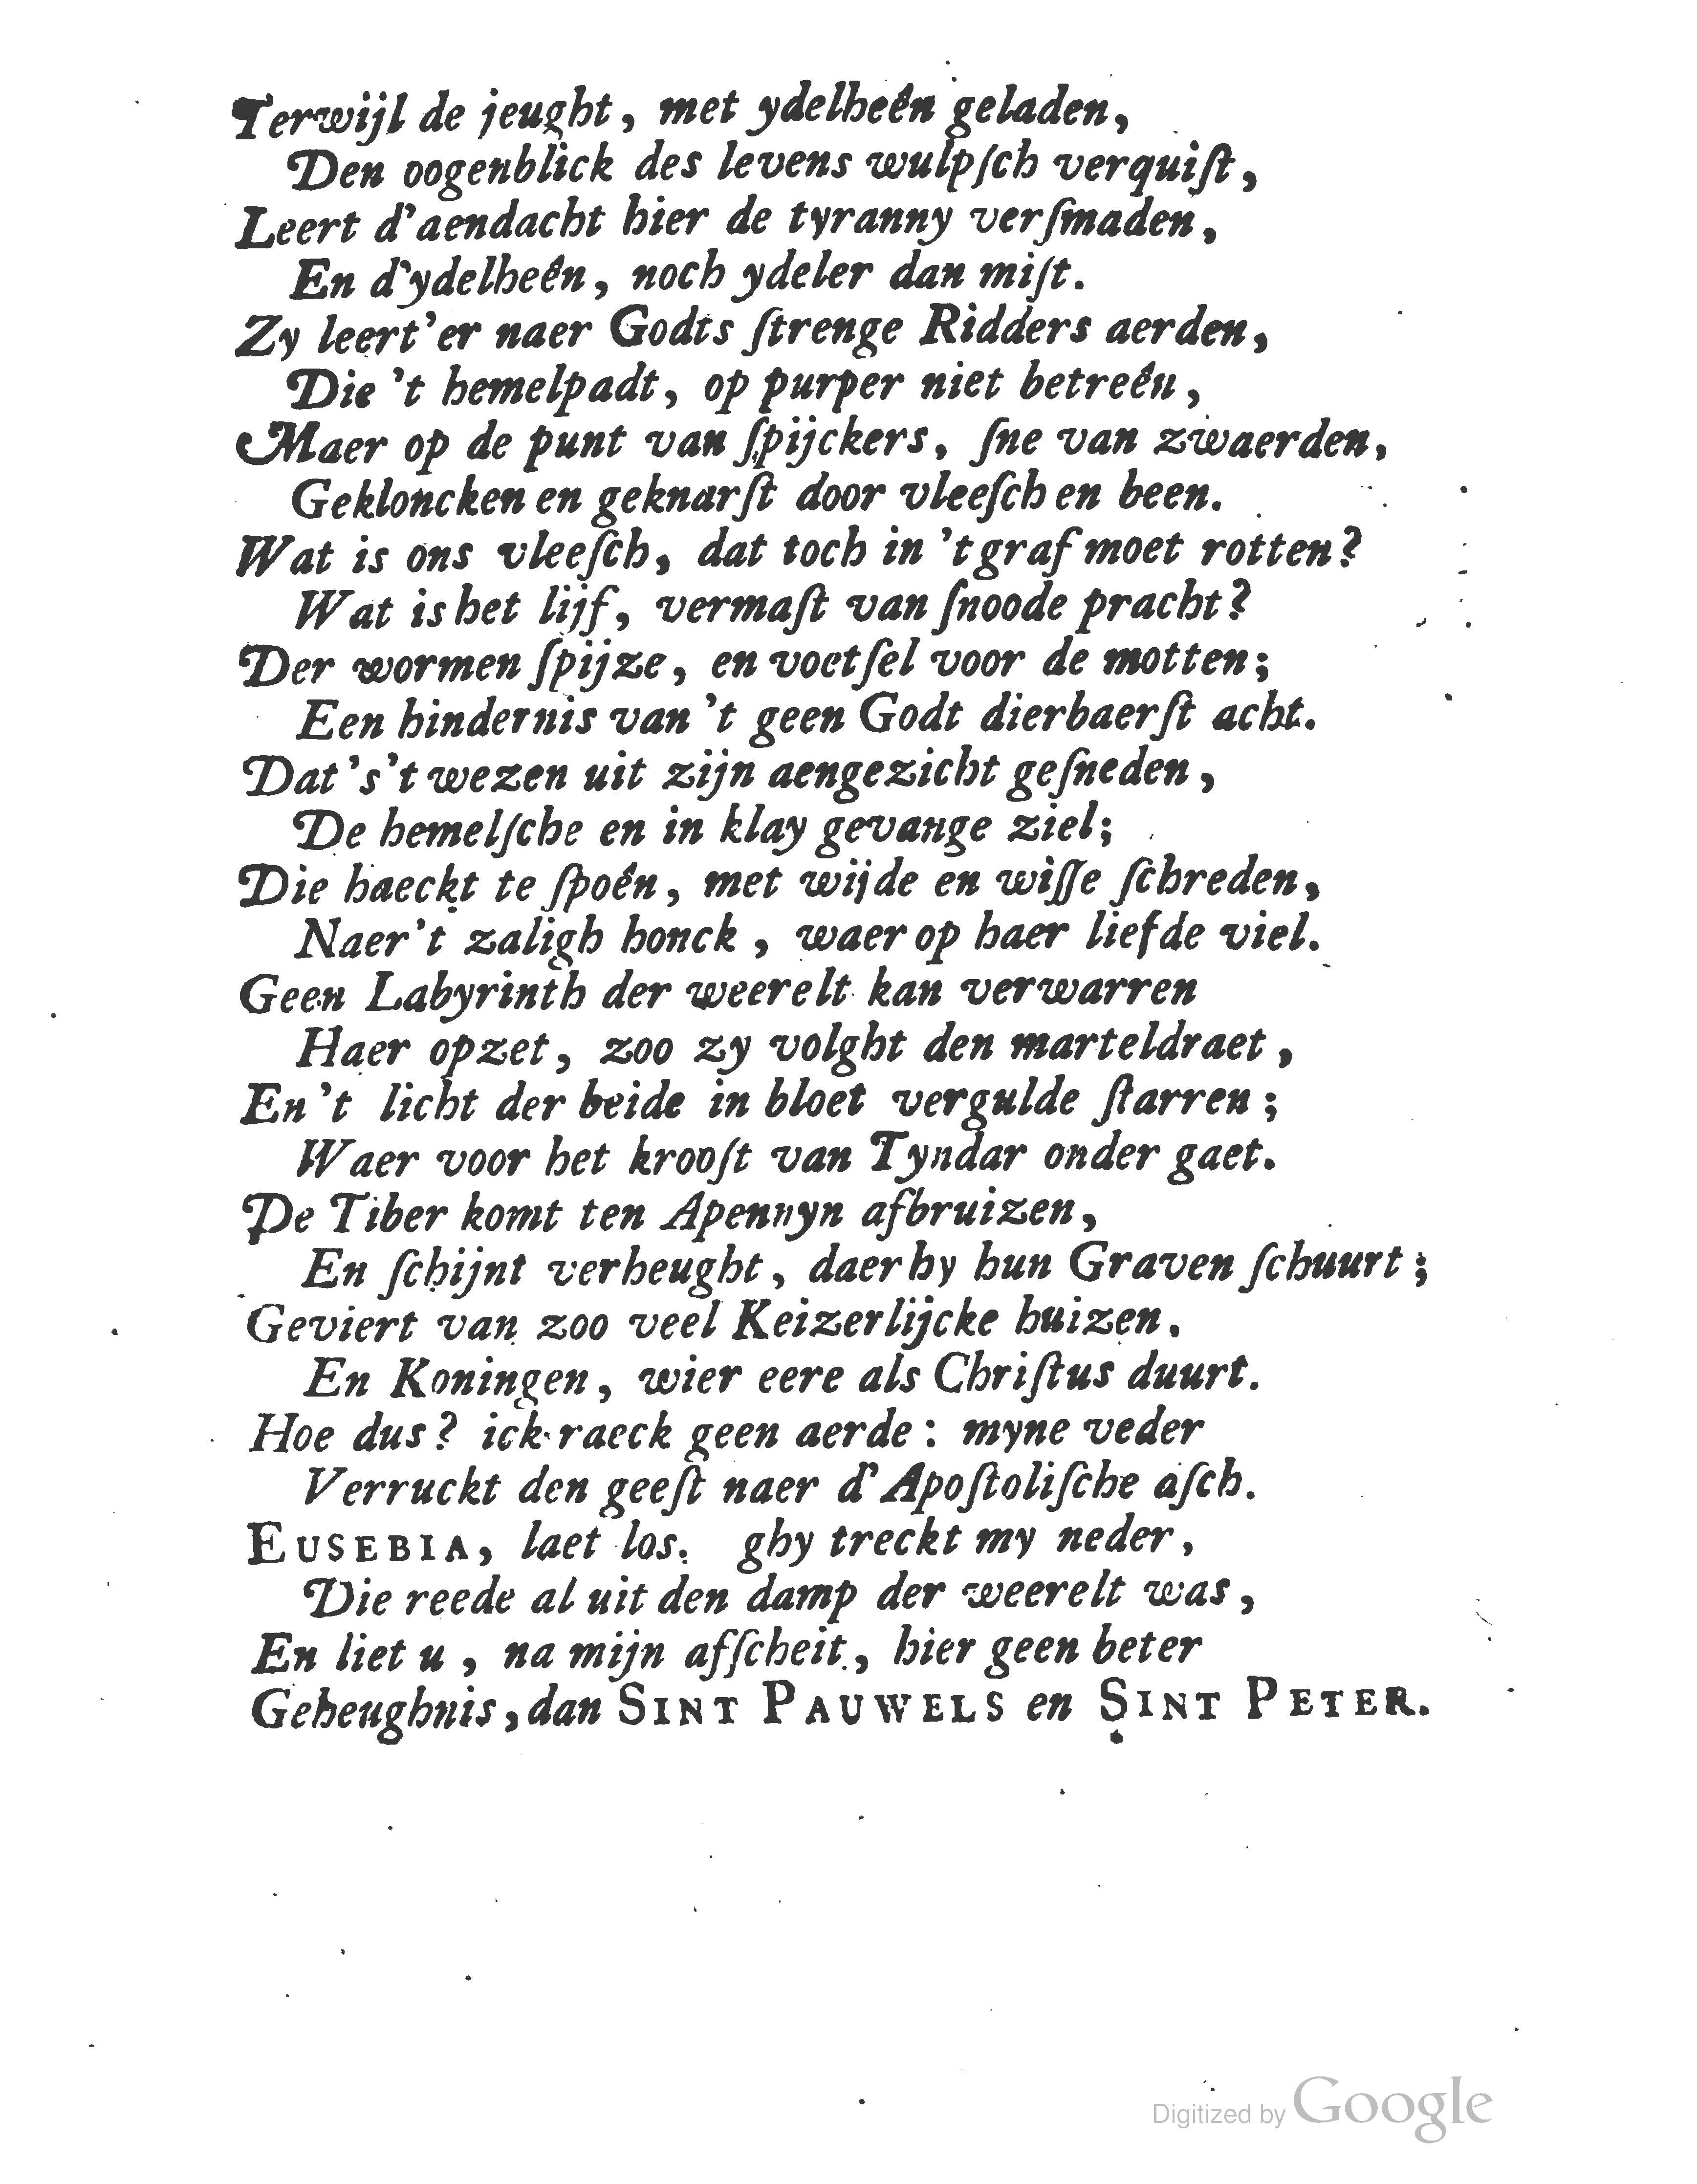 Terwijl de jeught, met ydelheên geladen,
Den oogenblick des levens wulpſch verquiſt,
Leert d'aendacht hier de tyranny verſmaden,
En d'ydelheên, noch ydeler dan miſt.
Zy leert'er naer Godts ſtrenge Ridders aerden,
Die 't hemelpadt, op purper niet betreên,
Maer op de punt van ſpijckers, ſne van zwaerden,
Gekloncken en geknarſt door vleeſch en been.
Wat is ons vleeſch, dat toch in 't graf moet rotten?
Wat is het lijf, vermaſt van ſnoode pracht?
Der wormen ſpijze, en voetſel voor de motten;
Een hindernis van 't geen Godt dierbaerſt acht.
Dat 's 't wezen uit zijn aengezicht geſneden,
De hemelſche en in klay gevange ziel;
Die haeckt te ſpoên, met wijde en wiſſe ſchreden,
Naer 't zaligh honck, waer op haer liefde viel.
Geen Labyrinth der weerelt kan verwarren
Haer opzet, zoo zy volght den marteldraet,
En 't licht der beide in bloet vergulde ſtarren;
Waer voor het krooſt van Tyndar onder gaet.
De Tiber komt ten Apennyn afbruizen,
En ſchijnt verheught, daer hy hun Graven ſchuurt;
Geviert van zoo veel Keizerlijcke huizen,
En Koningen, wier eere als Chriſtus duurt.
Hoe dus? ick raeck geen aerde: myne veder
Verruckt den geeſt naer d'Apoſtoliſche aſch.
EUSEBIA, laet los. ghy treckt my neder,
Die reede al uit den damp der weerelt was,
En liet u, na mijn afſcheit, hier geen beter
Geheughnis, dan SINT PAUWELS en SINT PETER.
Digitized by Google